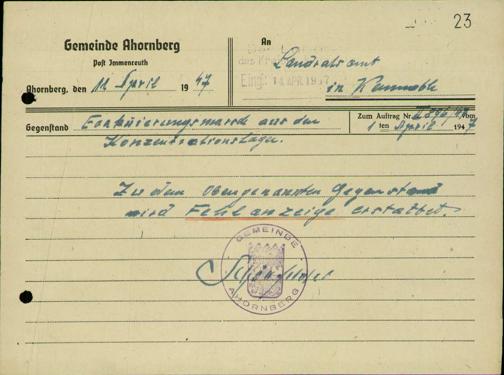 23
Gemeinde Ahornberg
Post Immenreuth
An
Landratsamt
in Kemnath
Eing. 14 APR. 1947
Ahornberg, den 11. April 1947
Gegenstand Evakuierungsmarsch aus den
Konzentrationslagern.
Zum Auftrag Nr. vom
1 ten April 1947
Zu dem Obengenannten Gegenstand
wird Fehlanzeige erstattet.
GEMEINDE
AHORNBERG